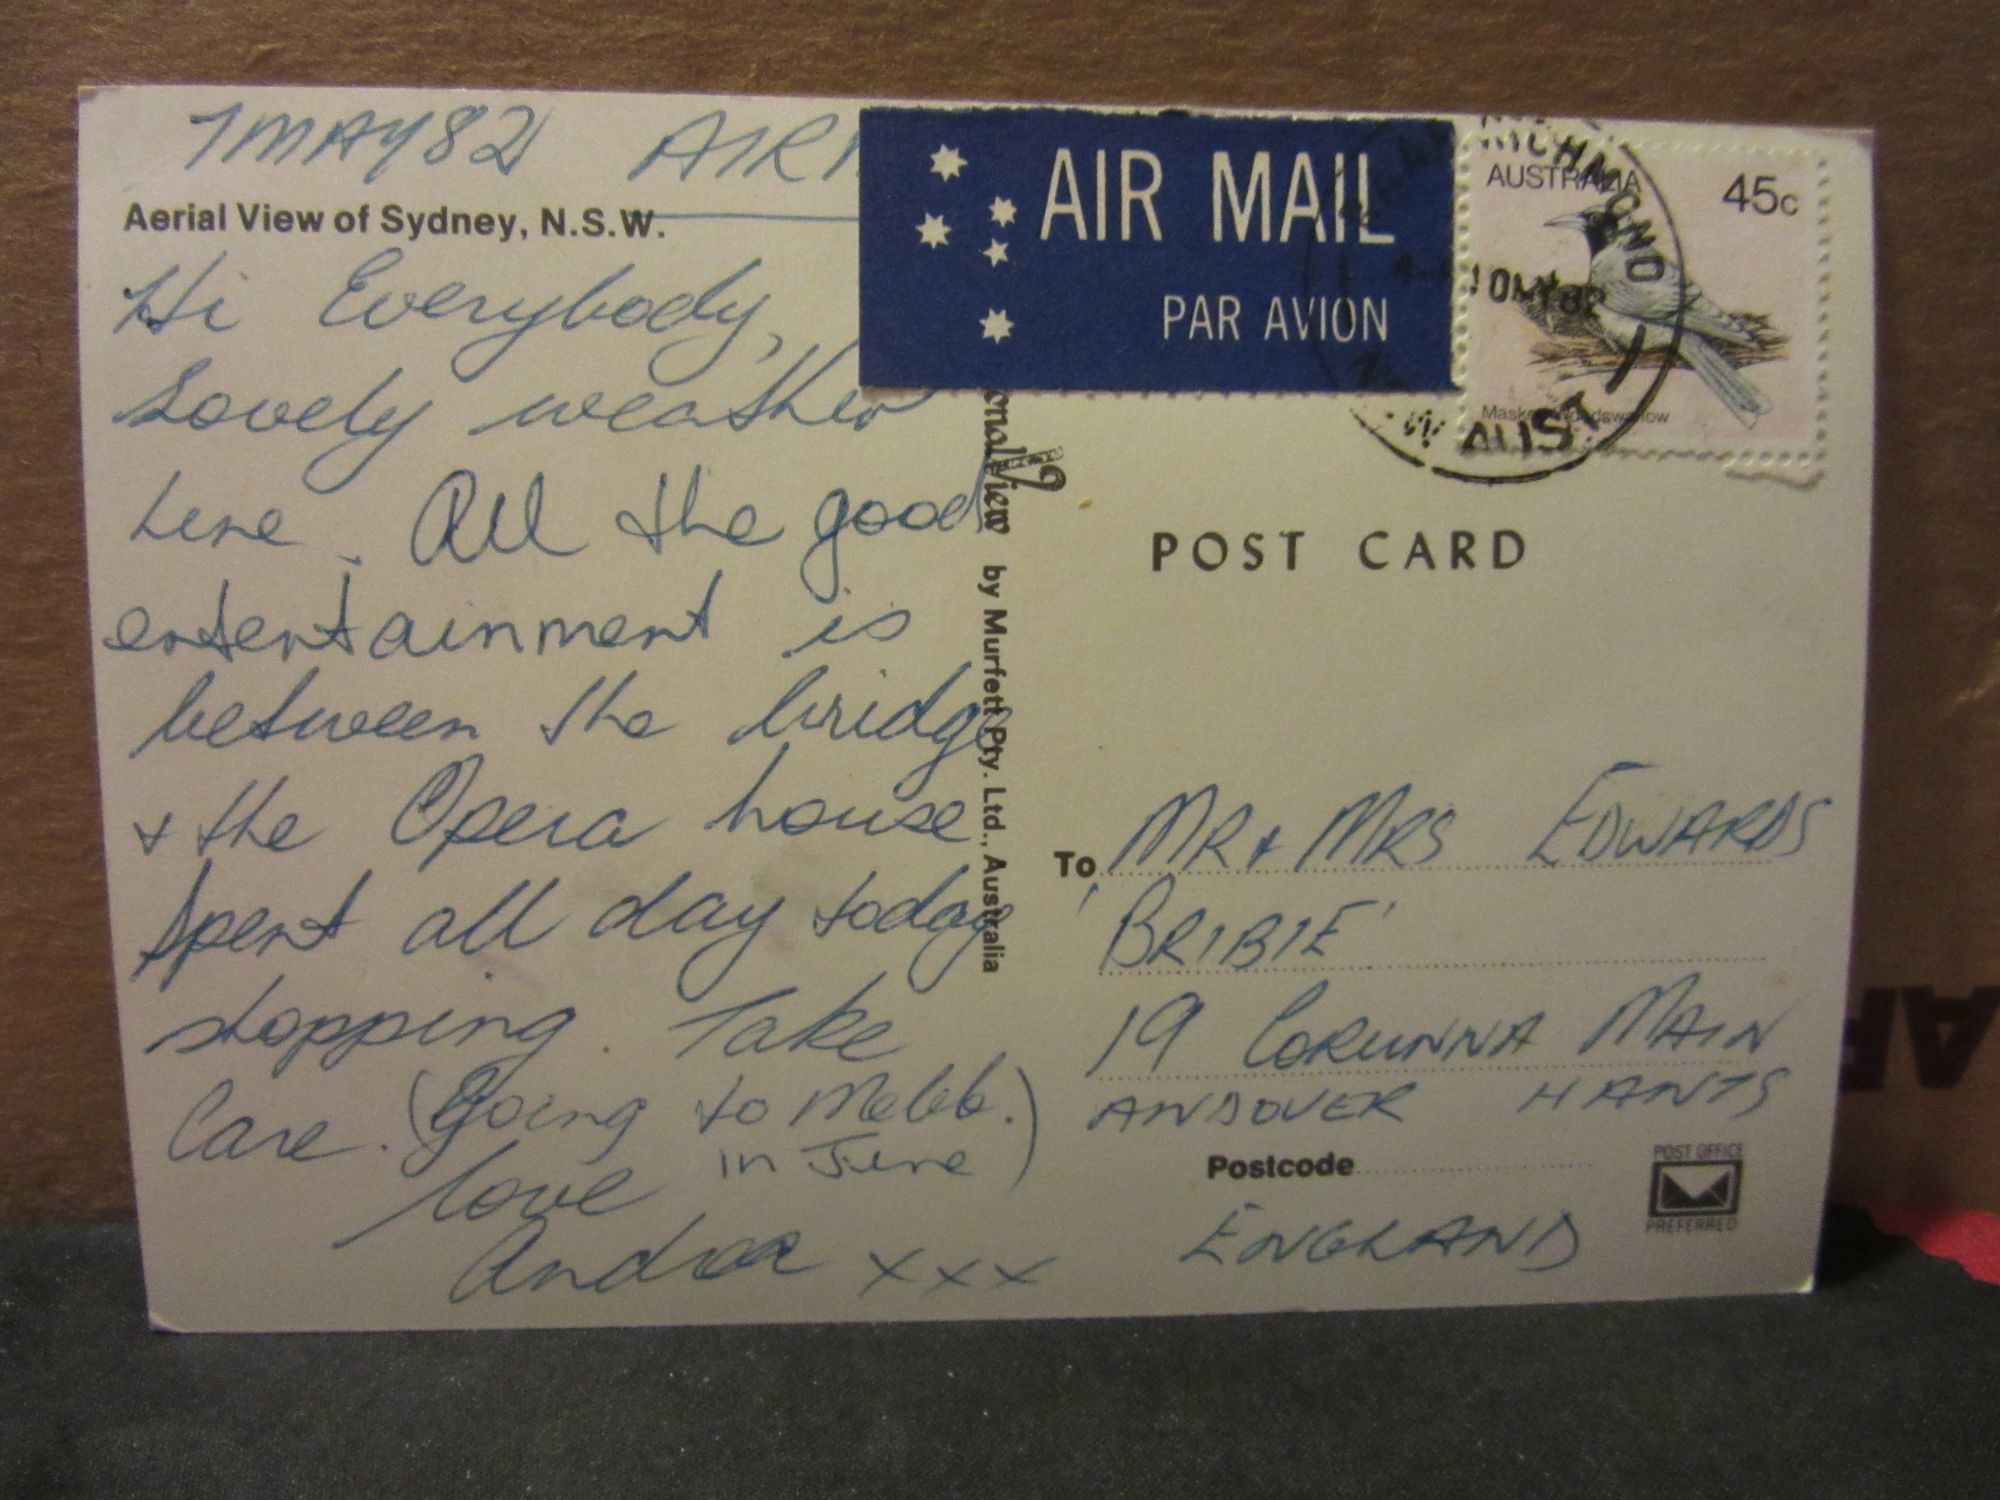 7 MAY 82 AIR
Aerial View of Sydney, N.S.W.
Hi Everybody,
Lovely weather
here. All the good
entertainment is
between the bridge
& the Opera house
Spent all day today
shopping. Take
Care. (Going to Melb.
in June)
love
Andrea xxx
View by Murfett Pty. Ltd., Australia
AIR MAIL
PAR AVION
RICHMOND
10 MY 82
N.S.W. AUST
AUSTRALIA
45c
Masked Woodswallow
POST CARD
To MR & MRS EDWARDS
'BRIBIE'
19 CORUNNA MAIN
ANDOVER HANTS
Postcode
ENGLAND
POST OFFICE
PREFERRED